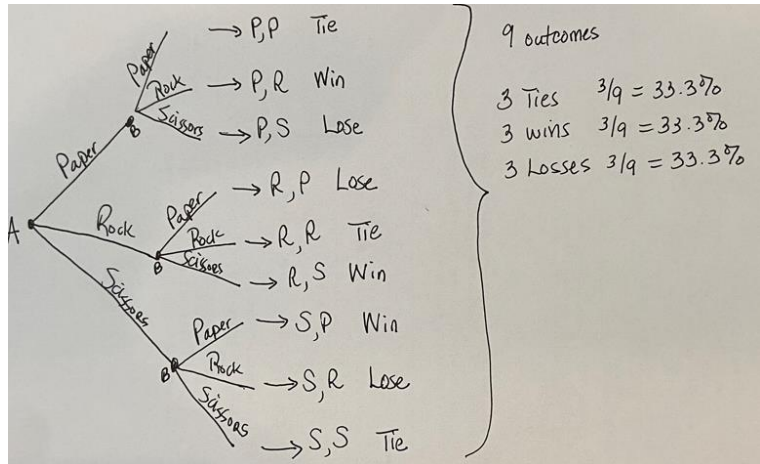 Paper → P,P Tie
Rock → P,R Win
B Scissors → P,S Lose
Paper
Paper → R,P Lose
A Rock B Rock → R,R Tie
Scissors → R,S Win
Scissors
Paper → S,P Win
B Rock → S,R Lose
Scissors → S,S Tie
9 outcomes
3 Ties 3/9 = 33.3%
3 wins 3/9 = 33.3%
3 Losses 3/9 = 33.3%